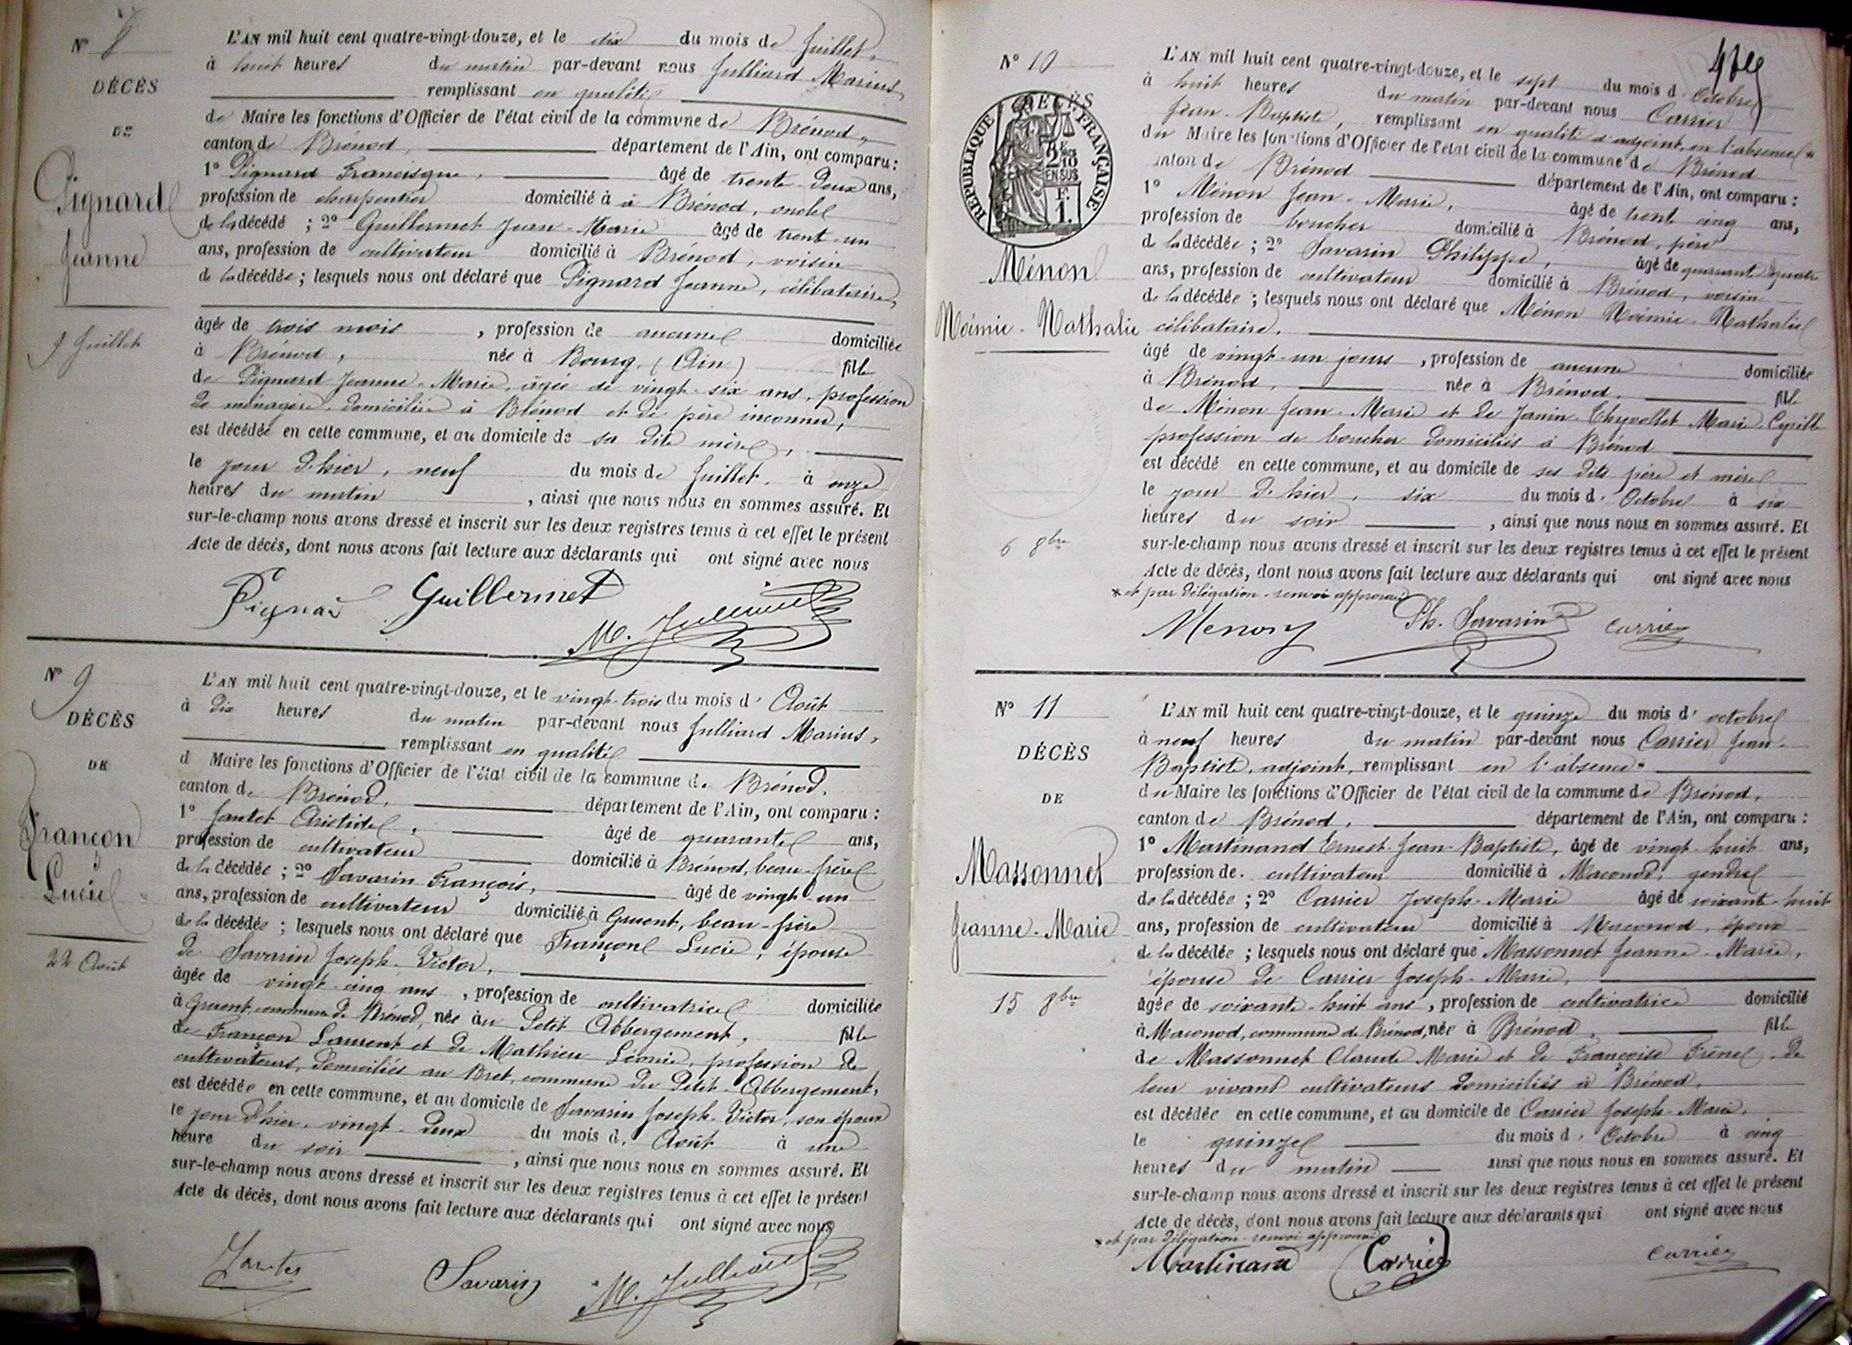 N° 8
DÉCÈS
DE
Pignard
Jeanne
9 Juillet
L'AN mil huit cent quatre-vingt-douze, et le dix du mois de Juillet,
à huit heures du matin par-devant nous Julliard Marius,
remplissant en qualité
de Maire les fonctions d'Officier de l'état civil de la commune de Brénod,
canton de Brénod, département de l'Ain, ont comparu :
1° Pignard Francisque, âgé de trente-deux ans,
profession de charpentier domicilié à à Brénod, oncle
de la décédé ; 2° Guillermet Jean-Marie âgé de trent-un
ans, profession de cultivateur domicilié à Brénod, voisin
de la décédée ; lesquels nous ont déclaré que Pignard Jeanne, célibataire,
âgée de trois mois, profession de aucune domiciliée
à Brénod, née à Bourg (Ain) fille
de Pignard Jeanne-Marie, âgée de vingt-six ans, profession
de ménagère, domiciliée à Brénod et de père inconnu,
est décédée en cette commune, et au domicile de sa dite mère,
le jour d'hier, neuf du mois de Juillet, à onze
heures du matin, ainsi que nous nous en sommes assuré. Et
sur-le-champ nous avons dressé et inscrit sur les deux registres tenus à cet effet le présent
Acte de décès, dont nous avons fait lecture aux déclarants qui ont signé avec nous
Pignard Guillermet M. Julliard
N° 9
DÉCÈS
DE
Françon
Lucie
22 Août
L'AN mil huit cent quatre-vingt-douze, et le vingt-trois du mois d' Août
à dix heures du matin par-devant nous Julliard Marius,
remplissant en qualité
d Maire les fonctions d'Officier de l'état civil de la commune de Brénod.
canton de Brénod, département de l'Ain, ont comparu :
1° Jantet Aristide, âgé de quarante ans,
profession de cultivateur domicilié à Brénod, beau-frère
de la décédée ; 2° Savarin François, âgé de vingt-un
ans, profession de cultivateur domicilié à Gruent, beau-frère
de la décédée ; lesquels nous ont déclaré que Françon Lucie, épouse
de Savarin Joseph-Victor,
âgée de vingt-cinq ans, profession de cultivatrice domiciliée
à Gruent, commune de Brénod, née au Petit Abbergement, fille
de Françon Laurent et de Mathieu Léonie, profession de
cultivateurs, domiciliés au Bret, commune du Petit-Abbergement,
est décédée en cette commune, et au domicile de Savarin Joseph-Victor, son époux
le jour d'hier, vingt-deux du mois d. Août à une
heure du soir, ainsi que nous nous en sommes assuré. Et
sur-le-champ nous avons dressé et inscrit sur les deux registres tenus à cet effet le présent
Acte de décès, dont nous avons fait lecture aux déclarants qui ont signé avec nous
Savarin M. Julliard
N° 10
DÉCÈS
RÉPUBLIQUE FRANÇAISE
2/10
EN SUS
F.
1.
Ménon
Noémie-Nathalie
6 8bre
L'AN mil huit cent quatre-vingt-douze, et le sept du mois d. Octobre
à huit heures du matin par-devant nous Carrier
Jean-Baptiste, remplissant en qualité d'adjoint, en l'absence *
du Maire les fonctions d'Officier de l'état civil de la commune de Brénod
canton de Brénod département de l'Ain, ont comparu :
1° Ménon Jean-Marie, âgé de trent cinq ans,
profession de boucher domicilié à Brénod, père
de la décédée ; 2° Savarin Philippe, âgé de quarante quatre
ans, profession de cultivateur domicilié à Brénod, voisin
de la décédée ; lesquels nous ont déclaré que Ménon Noémie-Nathalie
célibataire,
âgé de vingt-un jours, profession de aucune domiciliée
à Brénod, née à Brénod, fille
de Ménon Jean-Marie et de Janin-Thyvollet Marie-Cyrille
profession de boucher domiciliés à Brénod
est décédé en cette commune, et au domicile de ses dits père et mère
le jour d'hier, six du mois d. Octobre à six
heures du soir, ainsi que nous nous en sommes assuré. Et
sur-le-champ nous avons dressé et inscrit sur les deux registres tenus à cet effet le présent
Acte de décès, dont nous avons fait lecture aux déclarants qui ont signé avec nous
* et par délégation-renvoi approuvé
Menon Ph. Savarin Carrier
N° 11
DÉCÈS
DE
Massonnet
Jeanne-Marie
15 8bre
L'AN mil huit cent quatre-vingt-douze, et le quinze du mois d' octobre
à neuf heures du matin par-devant nous Carrier Jean-
Baptiste, adjoint, remplissant en l'absence *
du Maire les fonctions d'Officier de l'état civil de la commune de Brénod,
canton de Brénod, département de l'Ain, ont comparu :
1° Martinand Ernest-Jean-Baptiste, âgé de vingt-huit ans,
profession de. cultivateur domicilié à Maconod, gendre
de la décédée ; 2° Carrier Joseph-Marie âgé de soixante-huit
ans, profession de cultivateur domicilié à Maconod, époux
de la décédée ; lesquels nous ont déclaré que Massonnet Jeanne-Marie,
épouse de Carrier Joseph-Marie,
âgée de soixante-huit ans, profession de cultivatrice domicilié
à Maconod, commune de Brénod, née à Brénod, fille
de Massonnet Claude Marie et de Françoise Frènel, de
leur vivant cultivateurs domiciliés à Brénod,
est décédée en cette commune, et au domicile de Carrier Joseph-Marie,
le quinze du mois d. Octobre à cinq
heures du matin ainsi que nous nous en sommes assuré. Et
sur-le-champ nous avons dressé et inscrit sur les deux registres tenus à cet effet le présent
Acte de décès, dont nous avons fait lecture aux déclarants qui ont signé avec nous
* et par délégation-renvoi approuvé
Martinand Carrier Carrier